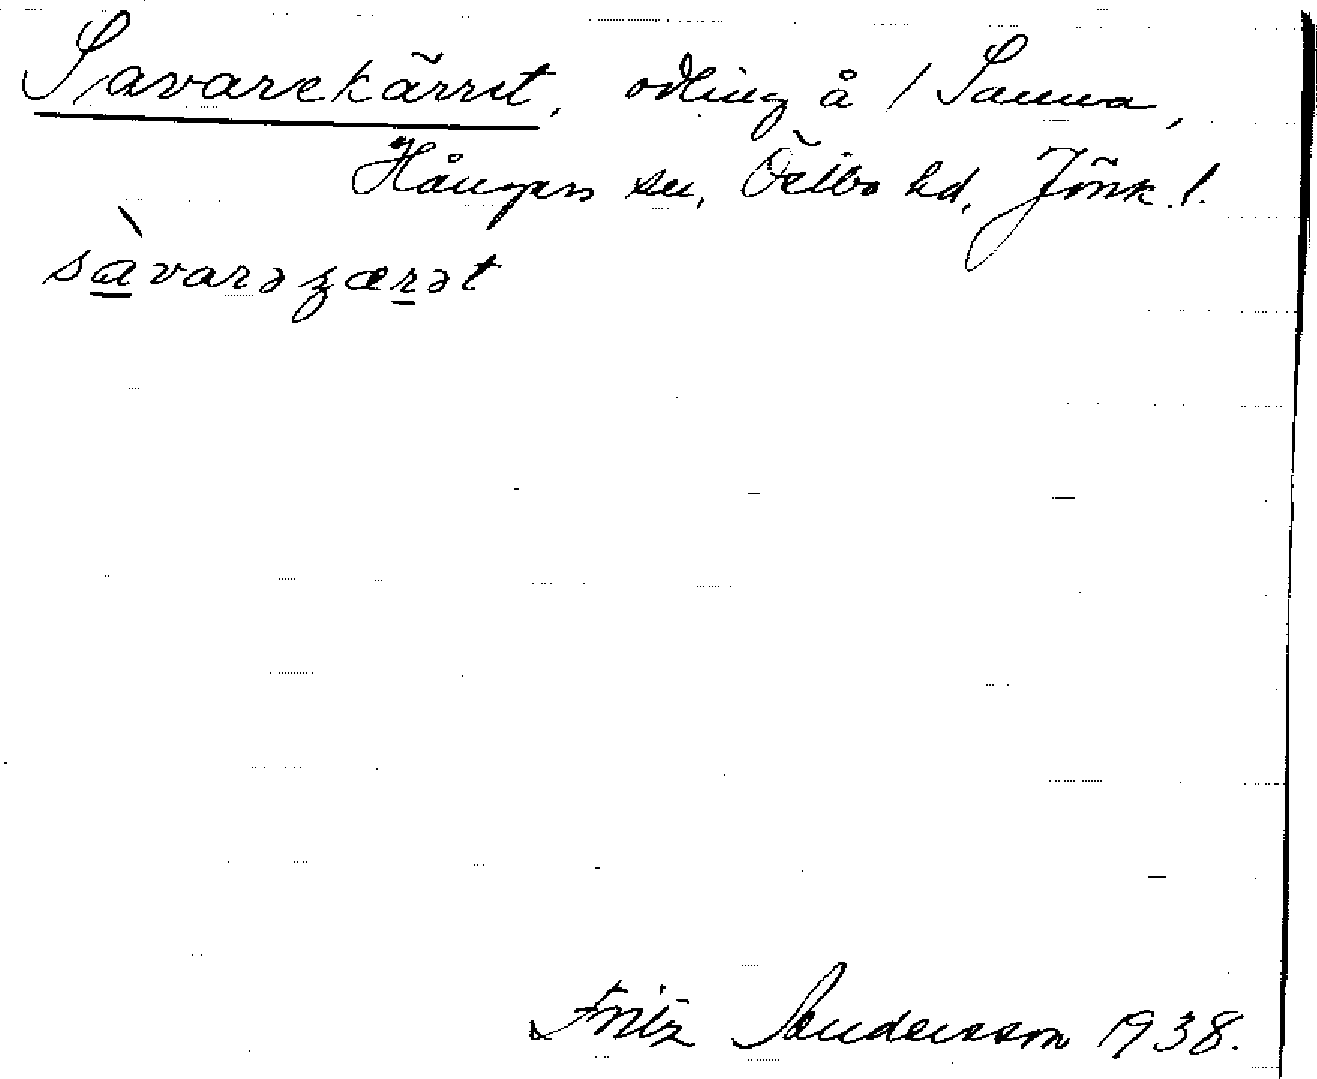 Savarekärret, odling å 1 Sanna,
Hångers sn, Östbo hd, Jönk. l.
sàvarəʒærət
Fritz Sandersson 1938.